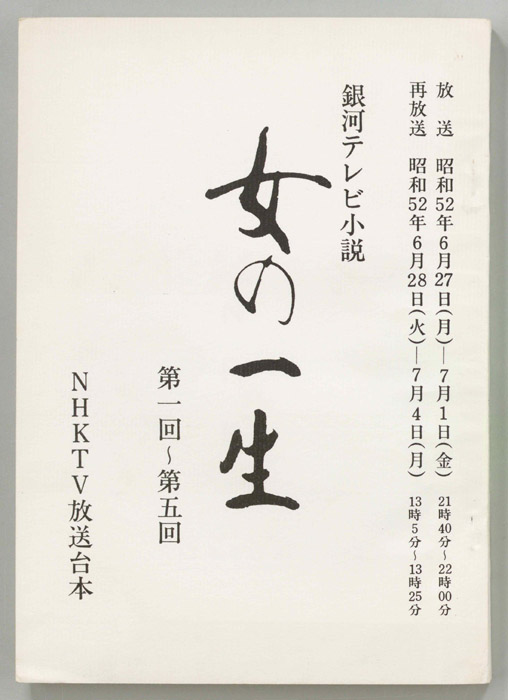 放送 昭和52年6月27日(月)―7月1日(金) 21時40分~22時00分
再放送 昭和52年6月28日(火)―7月4日(月) 13時5分~13時25分
銀河テレビ小説
女の一生
第一回~第五回
NHKTV放送台本